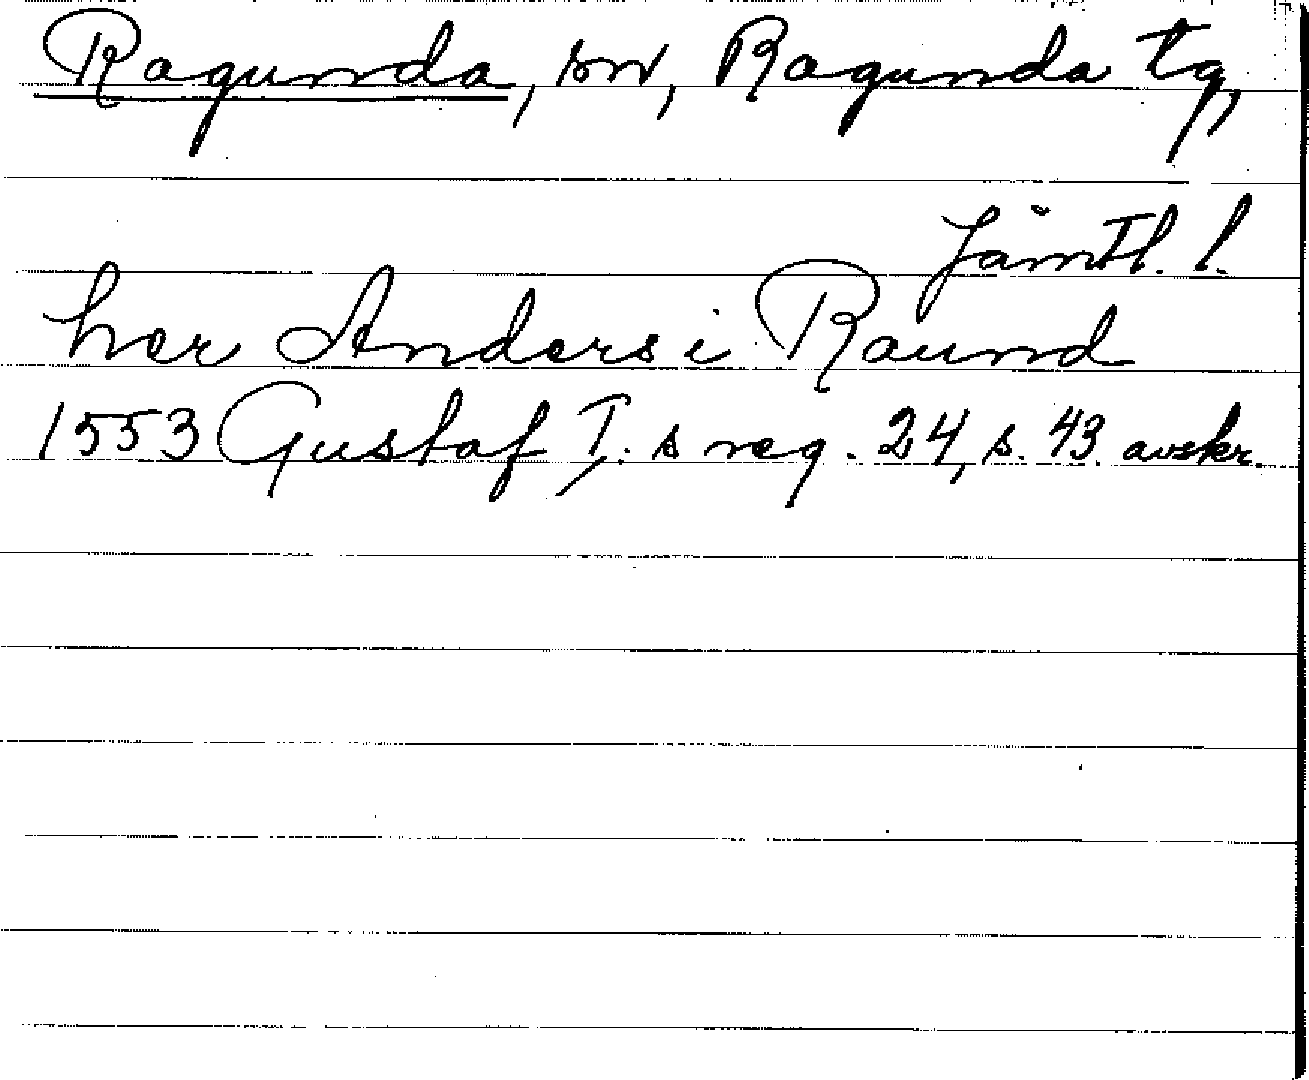 Ragunda, sn, Ragunda tg,
Jämtl. l.
her Anders i Raund
1553 Gustaf I:s reg. 24, s. 43. avskr.